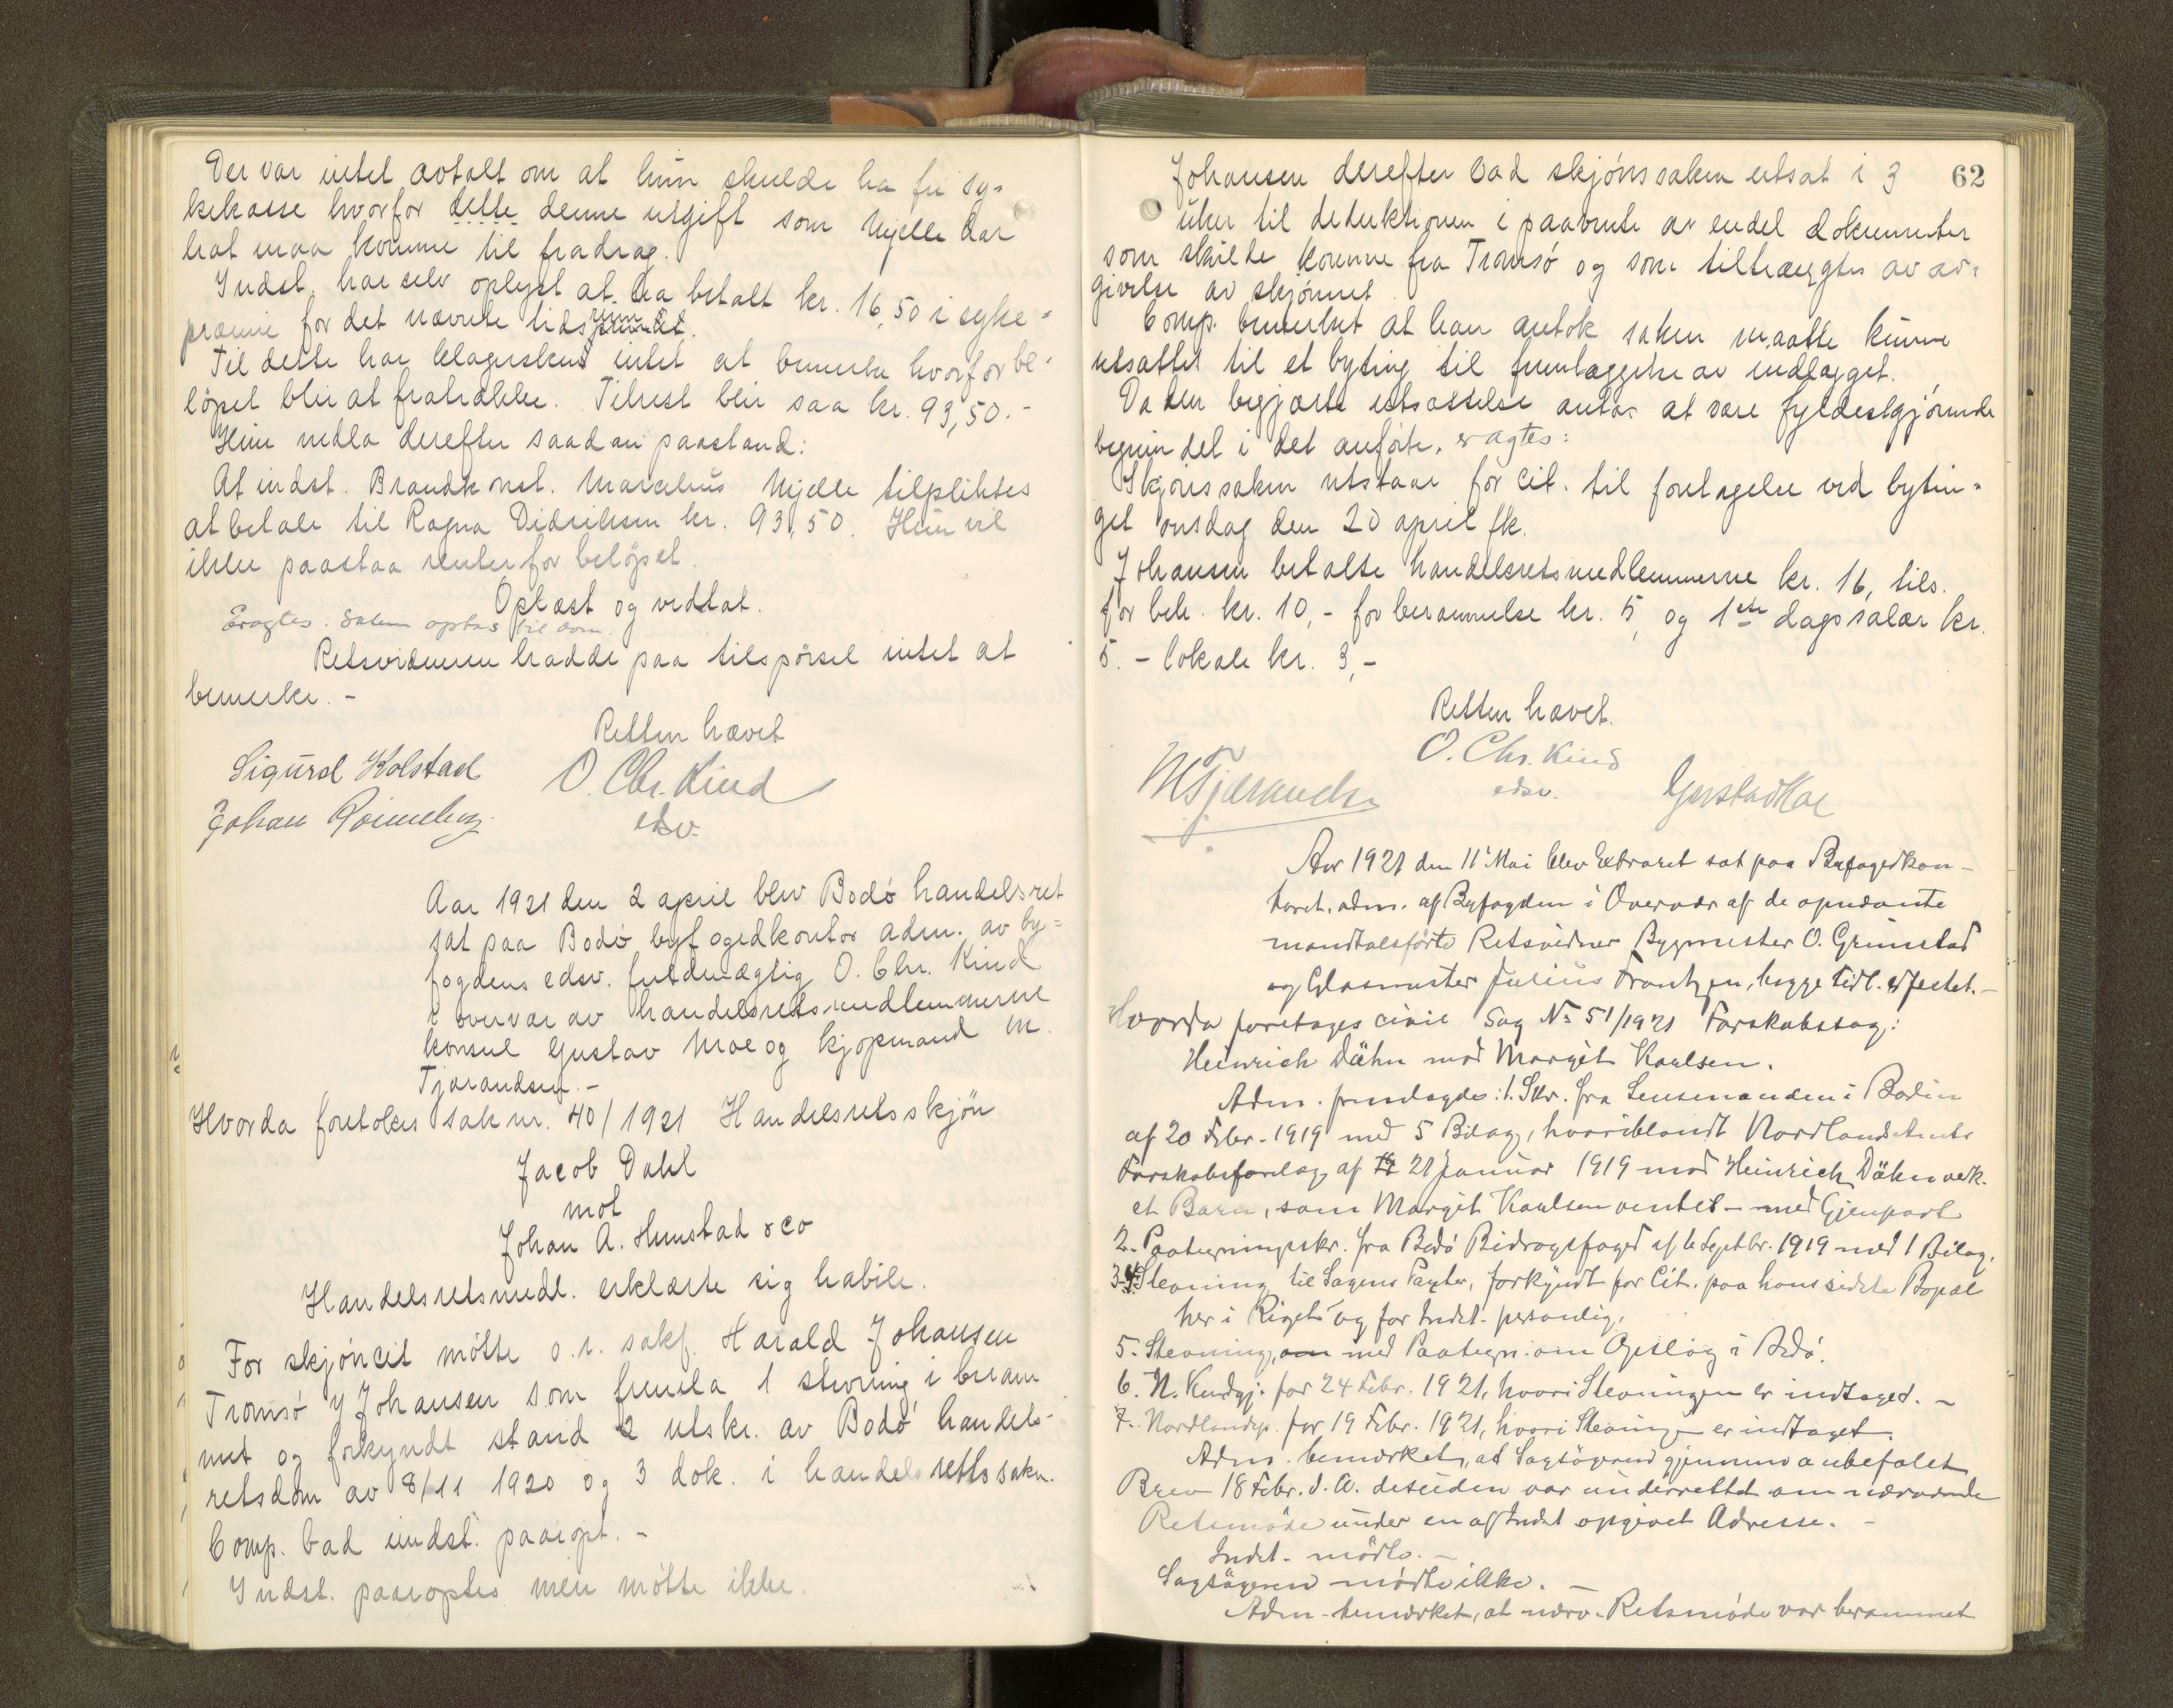 Der var intet avtalt om at hun skulde ha fri sy-
kekasse hvorfor dette denne utgift som Mjelle har
hat maa komme til fradrag.
Indst. har selv oplyst at ha betalt kr. 16,50 i syke=
præmie for det nævnte tidsrum
Til dette har klagersken intet at bemerke hvorfor be-
löpet blir at fratrække. Tilrest blir saa kr. 93,50.-
Hun nedla derefter saadan paastand:
At indst. Brandkonst. Marelius Mjelle tilpliktes
at betale til Ragna Didriksen kr. 93,50. Hun vil
ikke paastaa renter for belöpet.
Oplæst og vedtat.
Eragtes: Saken optas til dom.
Retsvidnerne hadde paa tilspörsel intet at
bemerke. -
Retten hævet
Sigurd Kolstad O. Chr. Kind
Johan Rönneberg edsv.
Aar 1921 den 2 april blev Bodö handelsret
sat paa Bodö byfogedkontor adm. av by=
fogdens edsv. fuldmægtig O. Chr. Kind
i overvær av handelsretsmedlemmerne
konsul Gustav Moe og kjöpmand M.
Tjærandsen. -
Hvorda foretokes sak nr. 40/1921 Handelsretsskjön
Jacob Dahl
mot
Johan A. Hunstad & co
Handelsretsmedl. erklærte sig habile.
For skjöncit mötte o.r. sakf. Harald Johansen
Tromsö v/ Johansen som fremla 1 stevning i beram
met og forkyndt stand 2 utskr. av Bodö handels-
retsdom av 8/11 1920 og 3 dok. i handelsretssaken.
Comp. bad indst. paaropt. -
Indst. paaroptes men mötte ikke.
62
Johansen derefter bad skjönssaken utsat i 3
uker til deduktionen i paavente av endel dokumenter
som skulde komme fra Tromsö og som tiltrængtes av av-
givelse av skjönnet.
Comp. bemerket at han antok saken maatte kunne
utsættes til et byting til fremlæggelse av indlægget.
Da den begjærte utsættelse antas at være fyldestgjörende
begrundet i det anförte, eragtes:
Skjönssaken utstaar for cit. til foretagelse ved bytin-
get onsdag den 20 april fk.
Johansen betalte handelsretsmedlemmerne kr. 16, tils.
for beh. kr. 10,- for berammelse kr. 5, og 1ste dagssalær kr.
5. - lokale kr. 3,-
Retten hævet.
M Tjærandsen O. Chr. Kind Gustav Moe
edsv.
Aar 1921 den 11te Mai blev Extraret sat paa Byfogedkon-
toret, adm. af Byfogden i Overvær af de opnævnte
mandtalsförte Retsvidner Bygmester O. Grimstad
og Glasmester Julius Frantzen, begge tidl. edfestet. -
Hvorda foretages civil Sag No 51/1921 Farskabssag:
Heinrich Dähn mod Margit Karlsen.
Adm. fremlagde: 1. Skr. fra Lensmanden i Bodin
af 20 Febr. 1919 med 5 Bilag, hvoriblandt Nordlands Amts
Farskabsforelæg af 21 Januar 1919 mod Heinrich Dähn vedk.
et Barn, som Margit Karlsen ventet - med Gjenpart
2. Paategningsskr. fra Bodö Bidragsfoged af 6 Septbr. 1919 med 1 Bilag.
3-4 Stevning til Sagens Parter, forkyndt for Cit. paa hans sidste Bopæl
her i Riget og for Indst. personlig.
5. Stevning, med Paategn. om Opslag i Bodö.
6. N. Kundgj. for 24 Febr. 1921, hvori Stevningen er indtaget. -
7. Nordlandsp. for 19 Febr. 1921, hvori Stevningen er indtaget.
Adm. bemærket, at Sagsögeren gjennem anbefalet
Brev 18 Febr. d. A. desuden var underrettet om nærværende
Retsmöde under en af Indst opgivet Adresse. -
Indst. mödte. -
Sagsögeren mödte ikke. -
Adm. bemærket, at nærv. Retsmöde var berammet